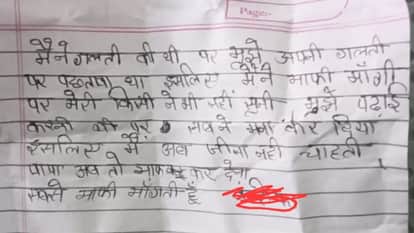 Page:
मैंने गलती की थी पर मुझे अपनी गलती
पर पछतावा था इसलिए मैंने माफी माँगी
पर मेरी किसी ने भी नहीं सुनी मुझे पढ़ाई
करनी थी पर सबने मना कर दिया
इसलिए मैं अब जीना नहीं चाहती
पापा अब तो माफ कर देना
सबसे माफी माँगती हूँ